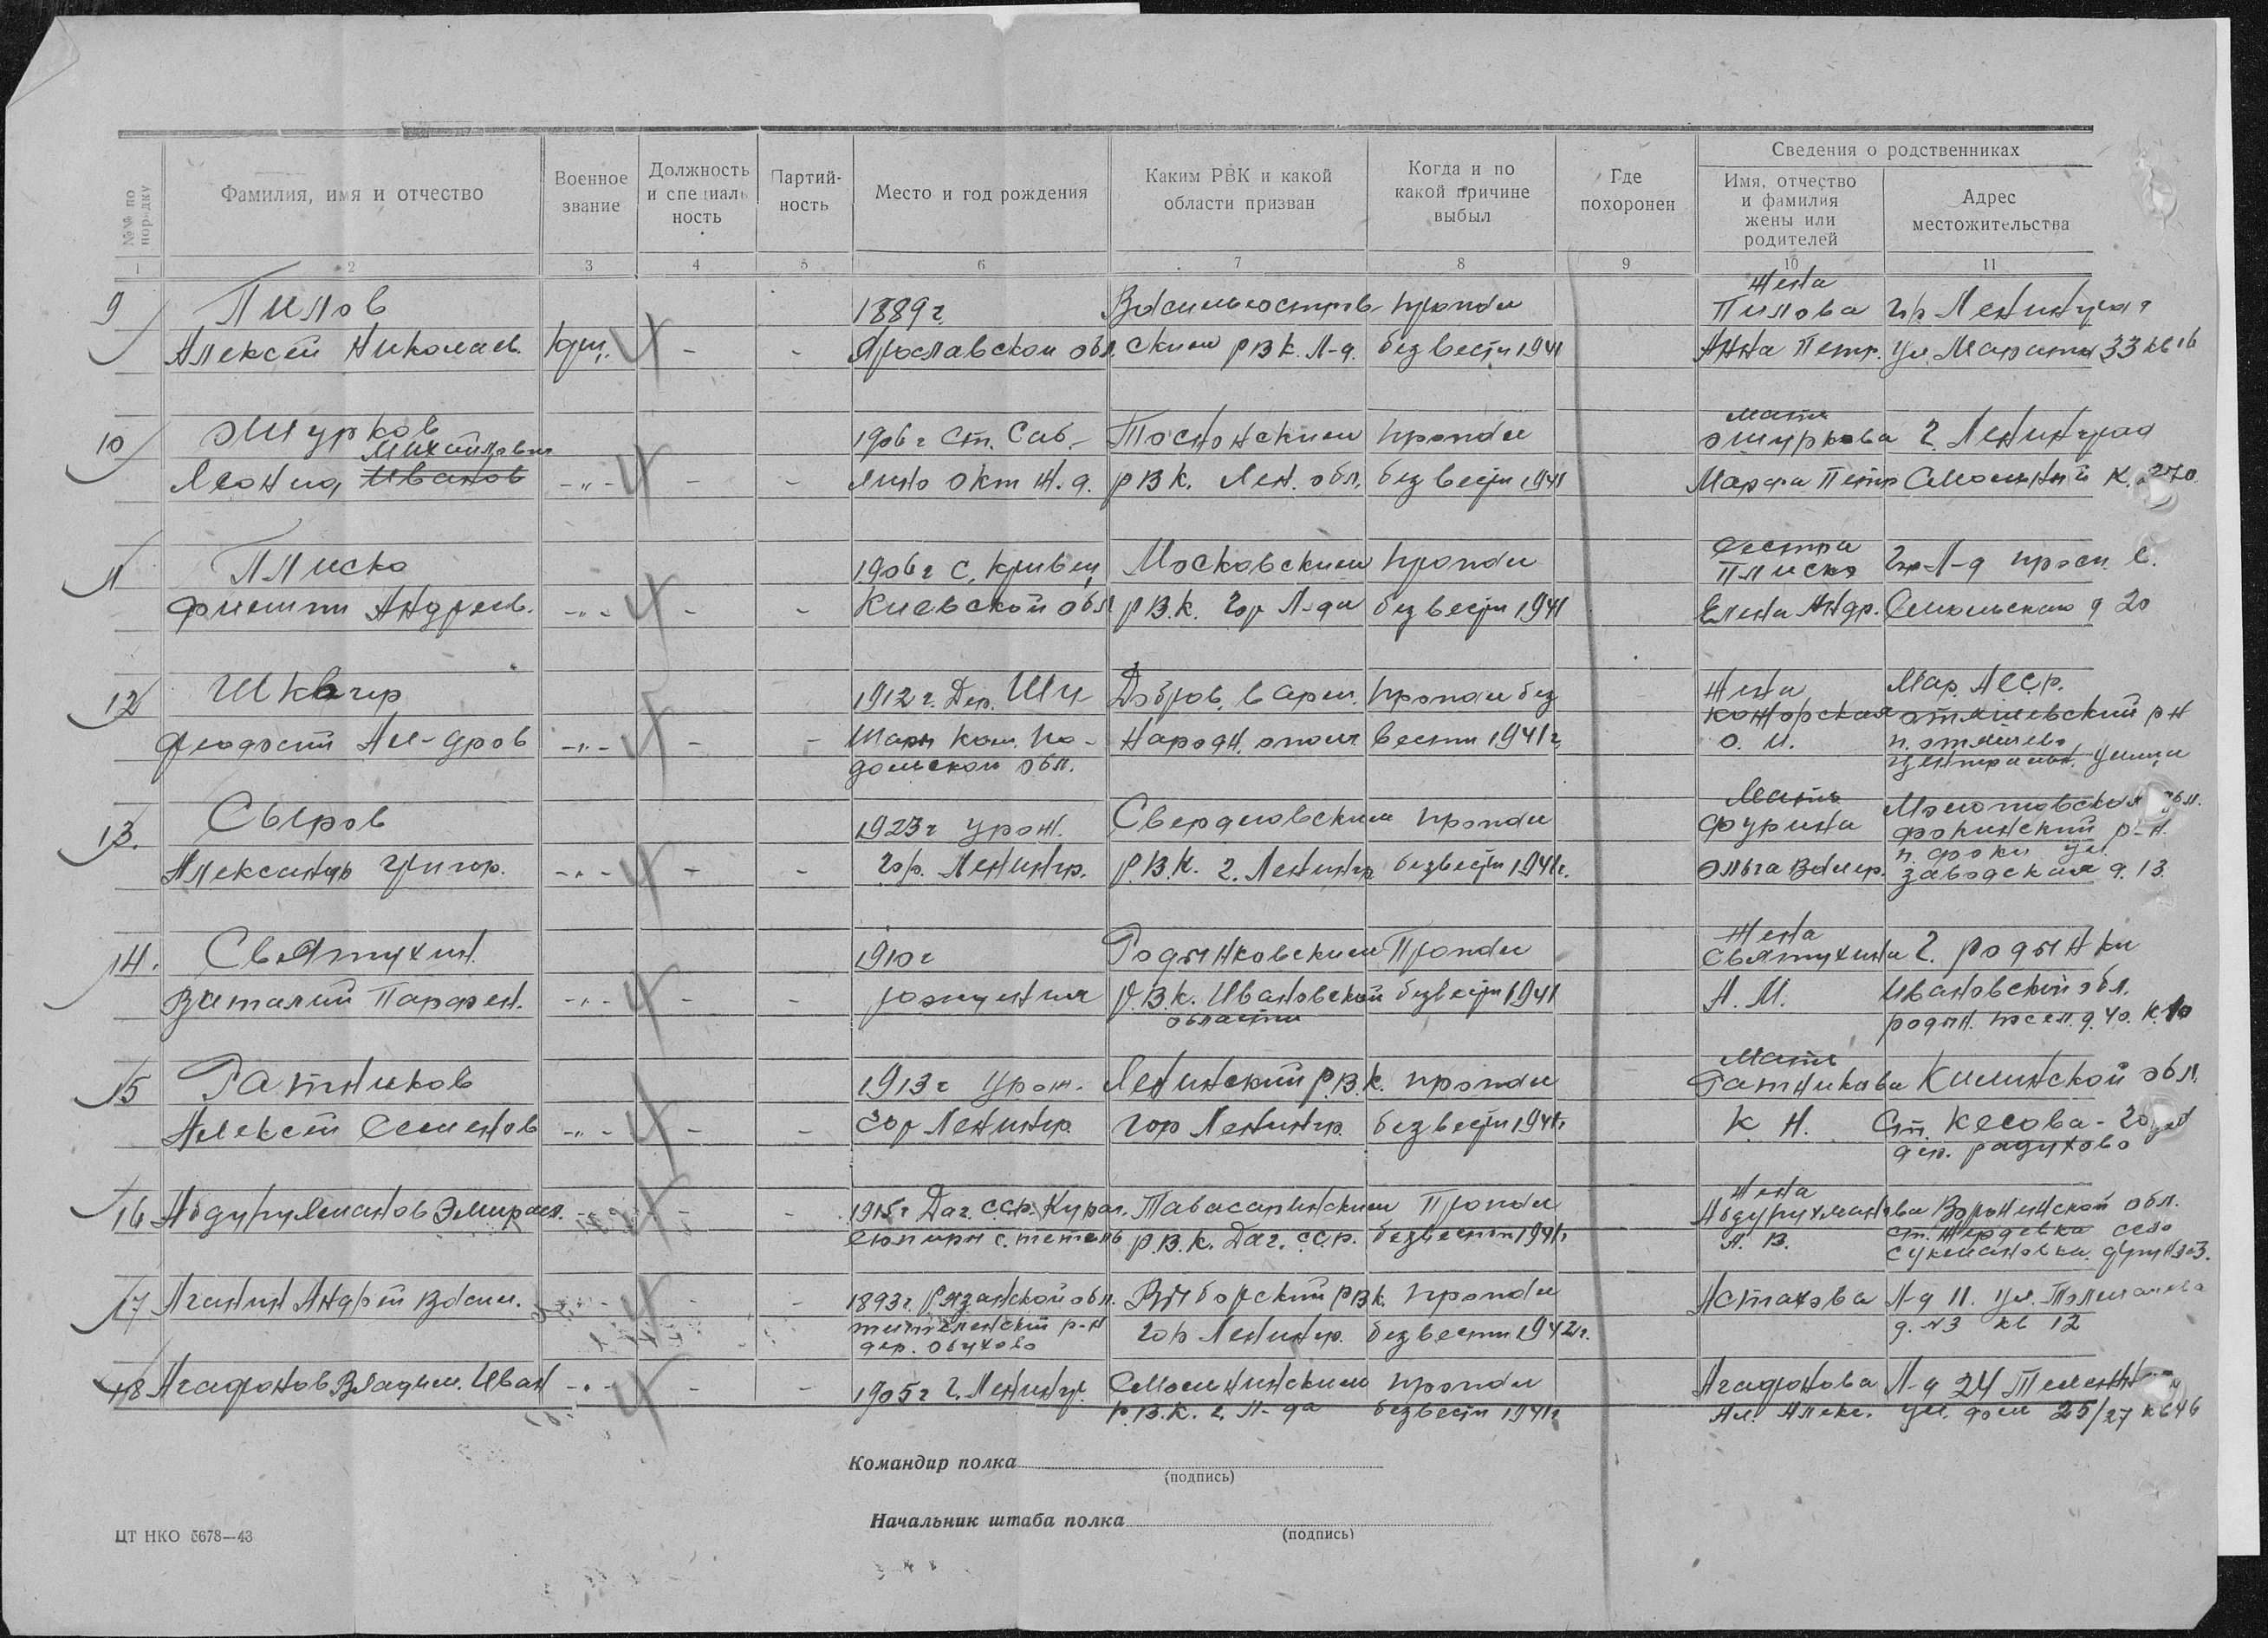 Сведения о родственниках
№№ по порядку
Фамилия, имя и отчество
Военное звание
Должность и специальность
Партийность
Место и год рождения
Каким РВК и какой области призван
Когда и по какой причине выбыл
Где похоронен
Имя, отчество и фамилия жены или родителей
Адрес местожительства
1 2 3 4 5 6 7 8 9 10 11
9 Пилов 1889 г. Василеостров- пропал жена Пилова гор Ленинград
Алексей Николаев. - - Ярославской обл. ским РВК Л-д. без вести 1941 Анна Петр. ул. Марата 33 кв 16
10 Ошурков 1906 г ст. Саб- Тоснонским пропал мать Ошуркова г. Ленинград
Леонид Иванов Михайлович -"- - - лино Окт ж.д. РВК. Лен. обл. без вести 1941 Марфа Петр Смольный к. 270
11 Плиско 1906 г с. Кривец Московским пропал сестра Плиско гор Л-д просп. С.
Филипп Андреев. -"- - - Киевской обл РВ.К. гор Л-да без вести 1941 Елена Андр. д 20
12 Шквыр 1912 г. Дер. Ши- Добров. в арм. пропал без жена Мар. АССР.
Феодосий Ал-дров -"- - - Кам. По- Народн. ополч. вести 1941 г. Конторская Отяшевский р-н
дольской обл. О. И. п. Отяшево
Центральн. улица
13. Сыров 1923 г урож. Свердловским пропал Мать Фурина Молотовская обл.
Александр Григор. -"- - - гор. Ленингр. Р.В.К. г. Ленингр. без вести 1941 г. Ольга Влад. Фокинский р-н
п. Фоки ул.
заводская д. 13.
14. Святухин. 1910 г Родниковским Пропал Жена Святухина г. Родники
Виталий Парфен. -"- - - Р.В.К. Ивановской области без вести 1941 А. М. Ивановской обл.
д. 40. к. 10
15 Ратников 1913 г урож. Ленинский Р.В.К. пропал Мать Ратникова Калининской обл.
Алексей Семенов -"- - - гор Ленингр. гор Ленингр. без вести 1941 г. К Н. Ст. Кесова-Гора
дер. Радухово
16 Абдурухманов Эмирасл. - - 1915 г Даг. ССР. Табасаринским Пропал Жена Абдурухманова Воронежской обл.
Р.В.К. Даг. ССР. без вести 1941 г. А. В. ст. Жердевка село
Сукмановка
17 Аганин Андрей Васил. -"- - - 1893 г. Рязанской обл. Выборгский РВК. пропал Астахова Л-д 11. ул.
р-н дер. Обухово гор Ленингр. без вести 1942 г. д. № 3 кв 12
18 Агафонов Владим. Иван -"- - - 1905 г г. Ленингр. Смольнинским пропал Агафонова Л-д 24
Р.В.К. г. Л-да без вести 1941 г Ал. Алекс. ул. дом 25/27 кв 46
Командир полка
(подпись)
Начальник штаба полка
(подпись)
ЦТ НКО 5678—43